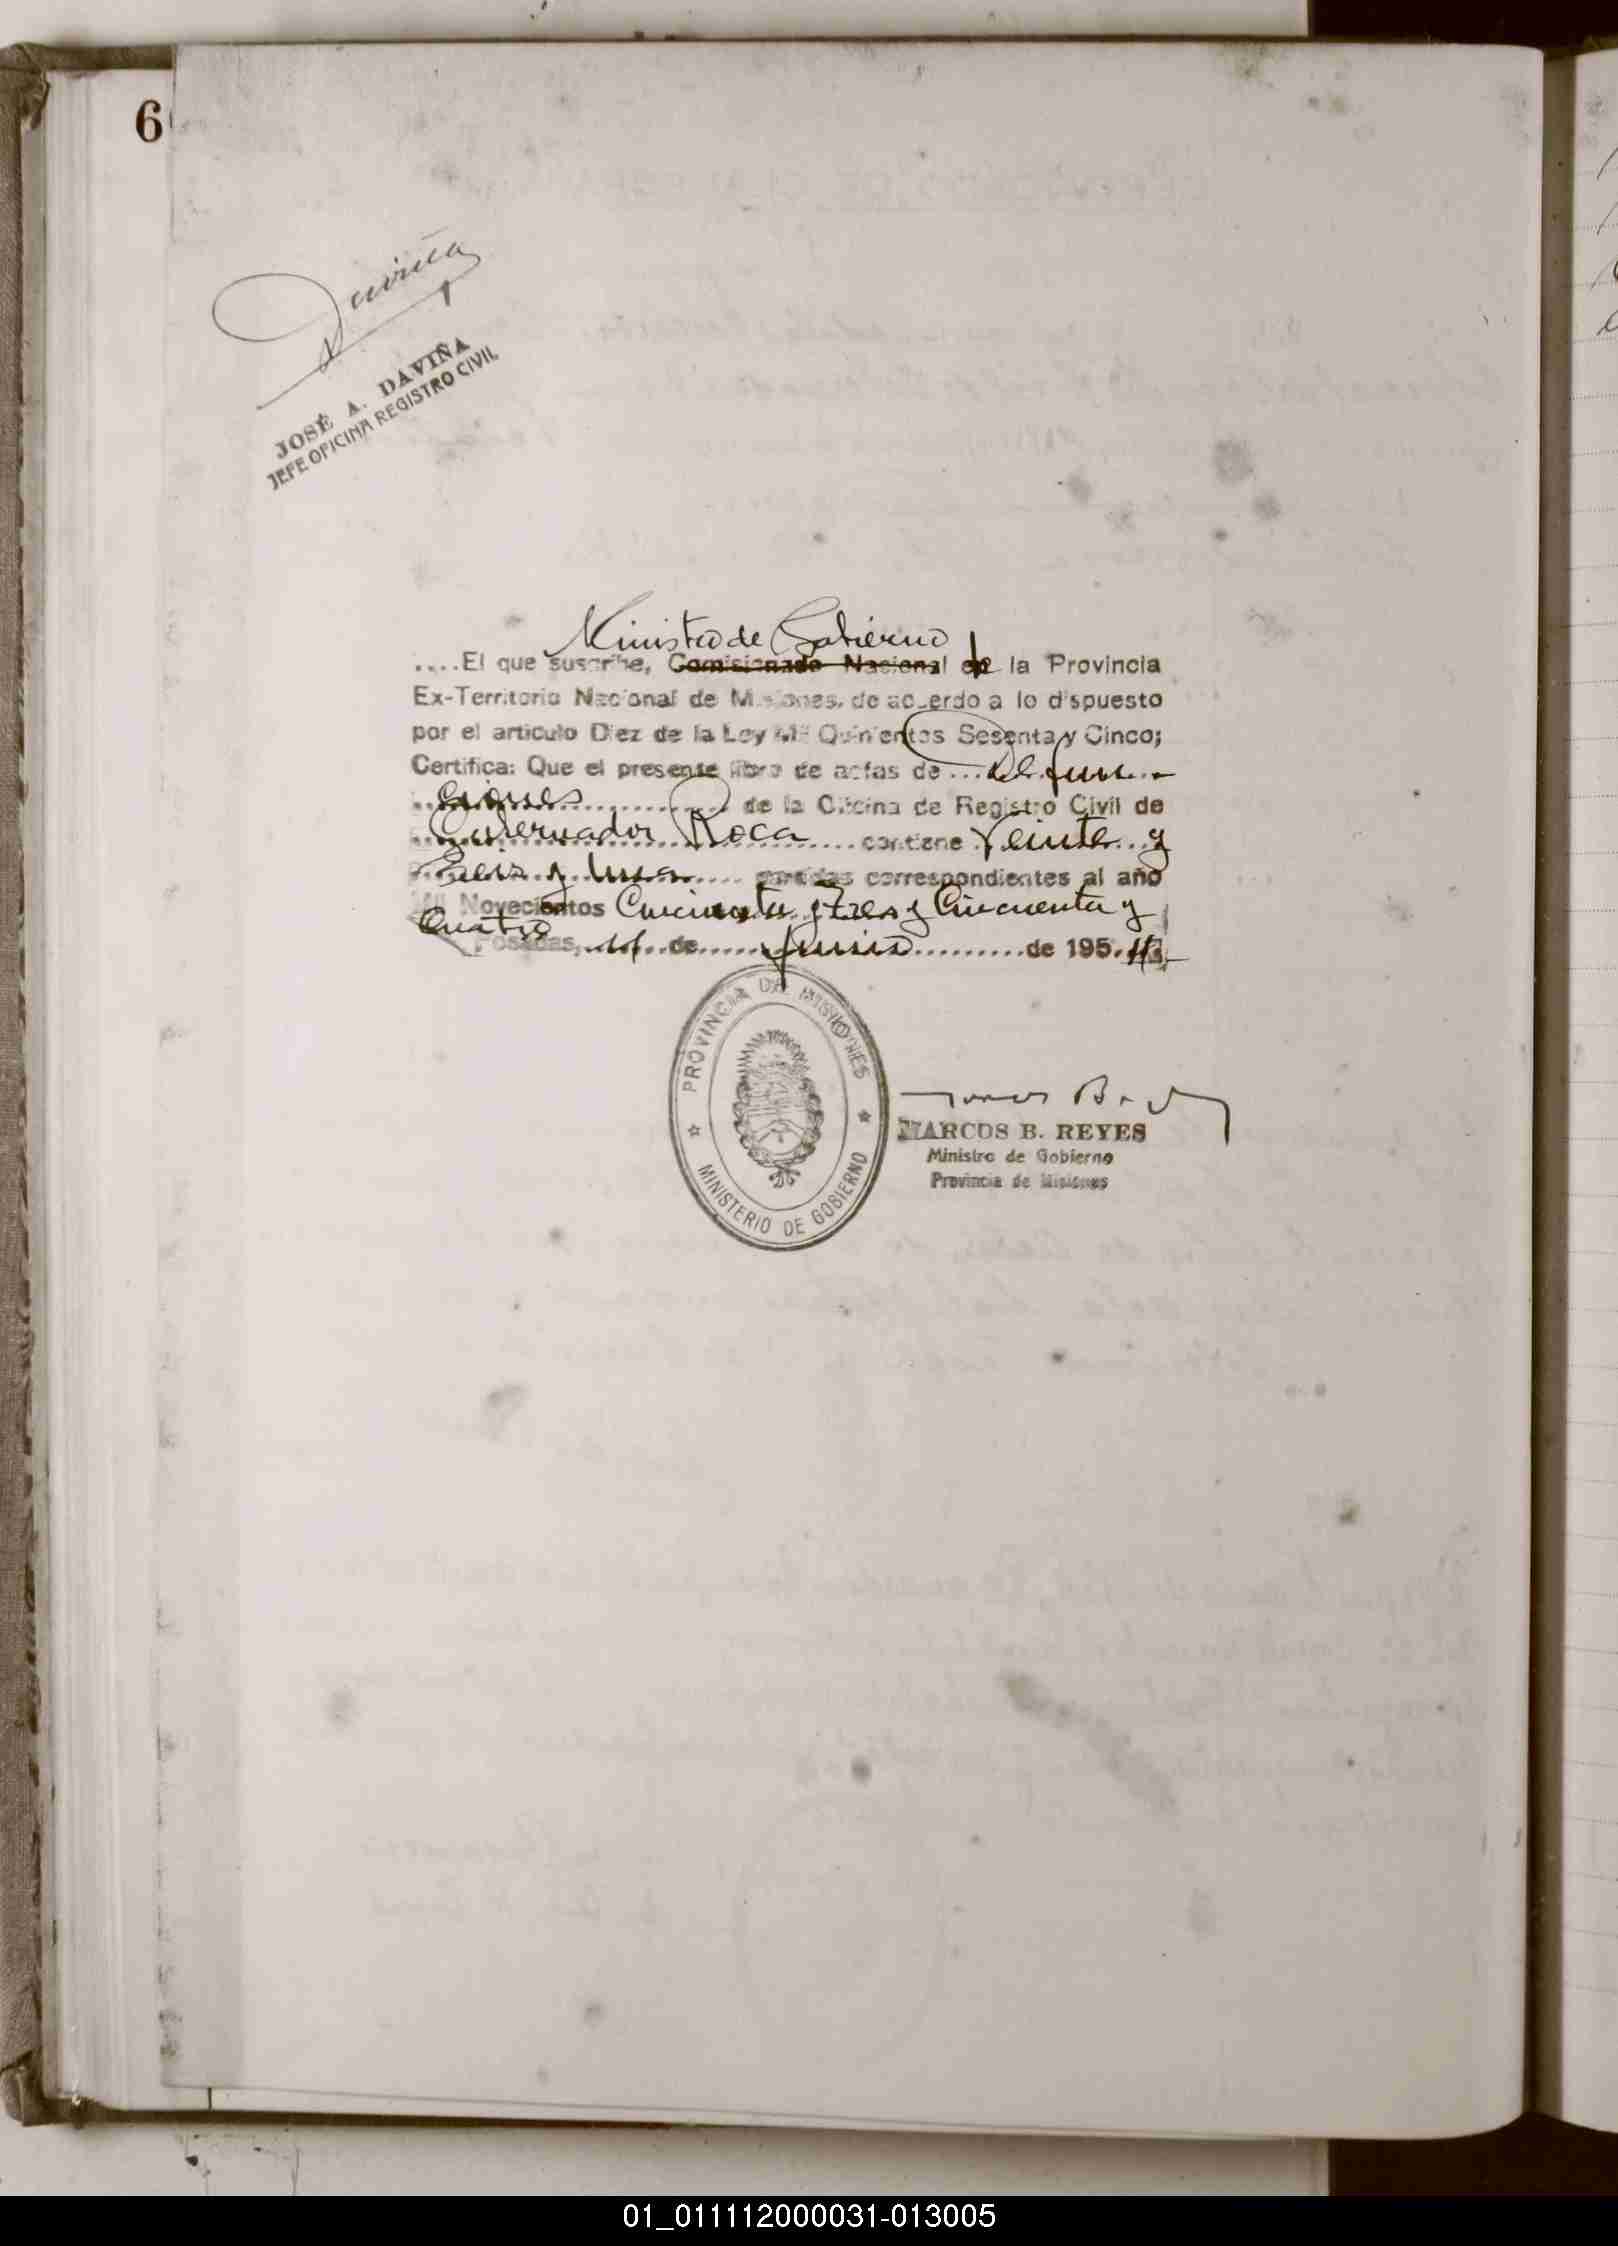 6
Daviña
JOSÉ A. DAVIÑA
JEFE OFICINA REGISTRO CIVIL
Ministro de Gobierno
....El que suscribe, Comisionado Nacional de la Provincia
Ex-Territorio Nacional de Misiones, de acuerdo a lo dispuesto
por el articulo Diez de la Ley Mil Quinientos Sesenta y Cinco;
Certifica: Que el presente libro de actas de ... Defun-
ciones de la Oficina de Registro Civil de
Gobernador Roca contiene Veinte y
Seis y una partidas correspondientes al año
Mil Novecientos Cincuenta y Tres y Cincuenta y
Cuatro
Posadas, de Junio de 195
PROVINCIA DE MISIONES
MINISTERIO DE GOBIERNO
MARCOS B. REYES
Ministro de Gobierno
Provincia de Misiones
01_011112000031-013005